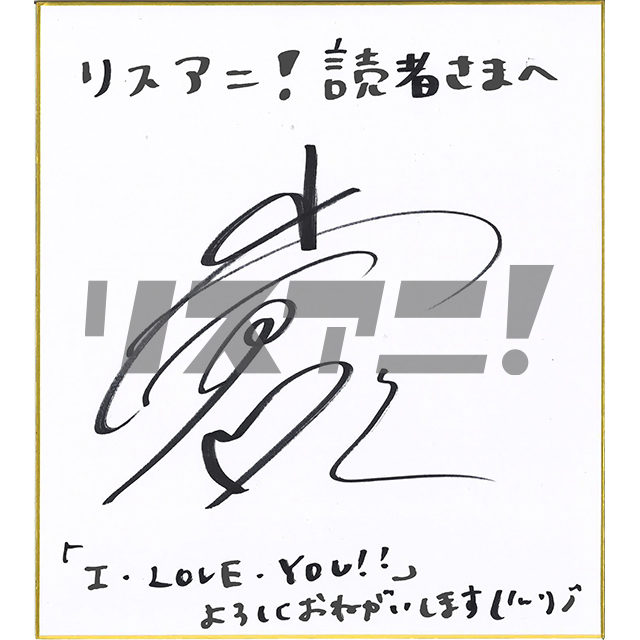 リスアニ！読者さまへ
リスアニ！
「I・LOVE・YOU!!」
よろしくおねがいします